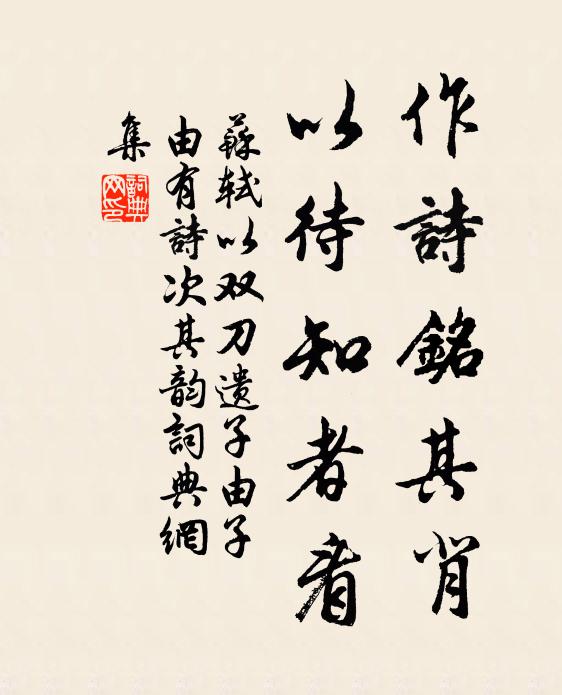 作詩銘其背
以待知者看
蘇軾以双刀遗子由子
由有詩次其韵詞典網
集
詞典
网印